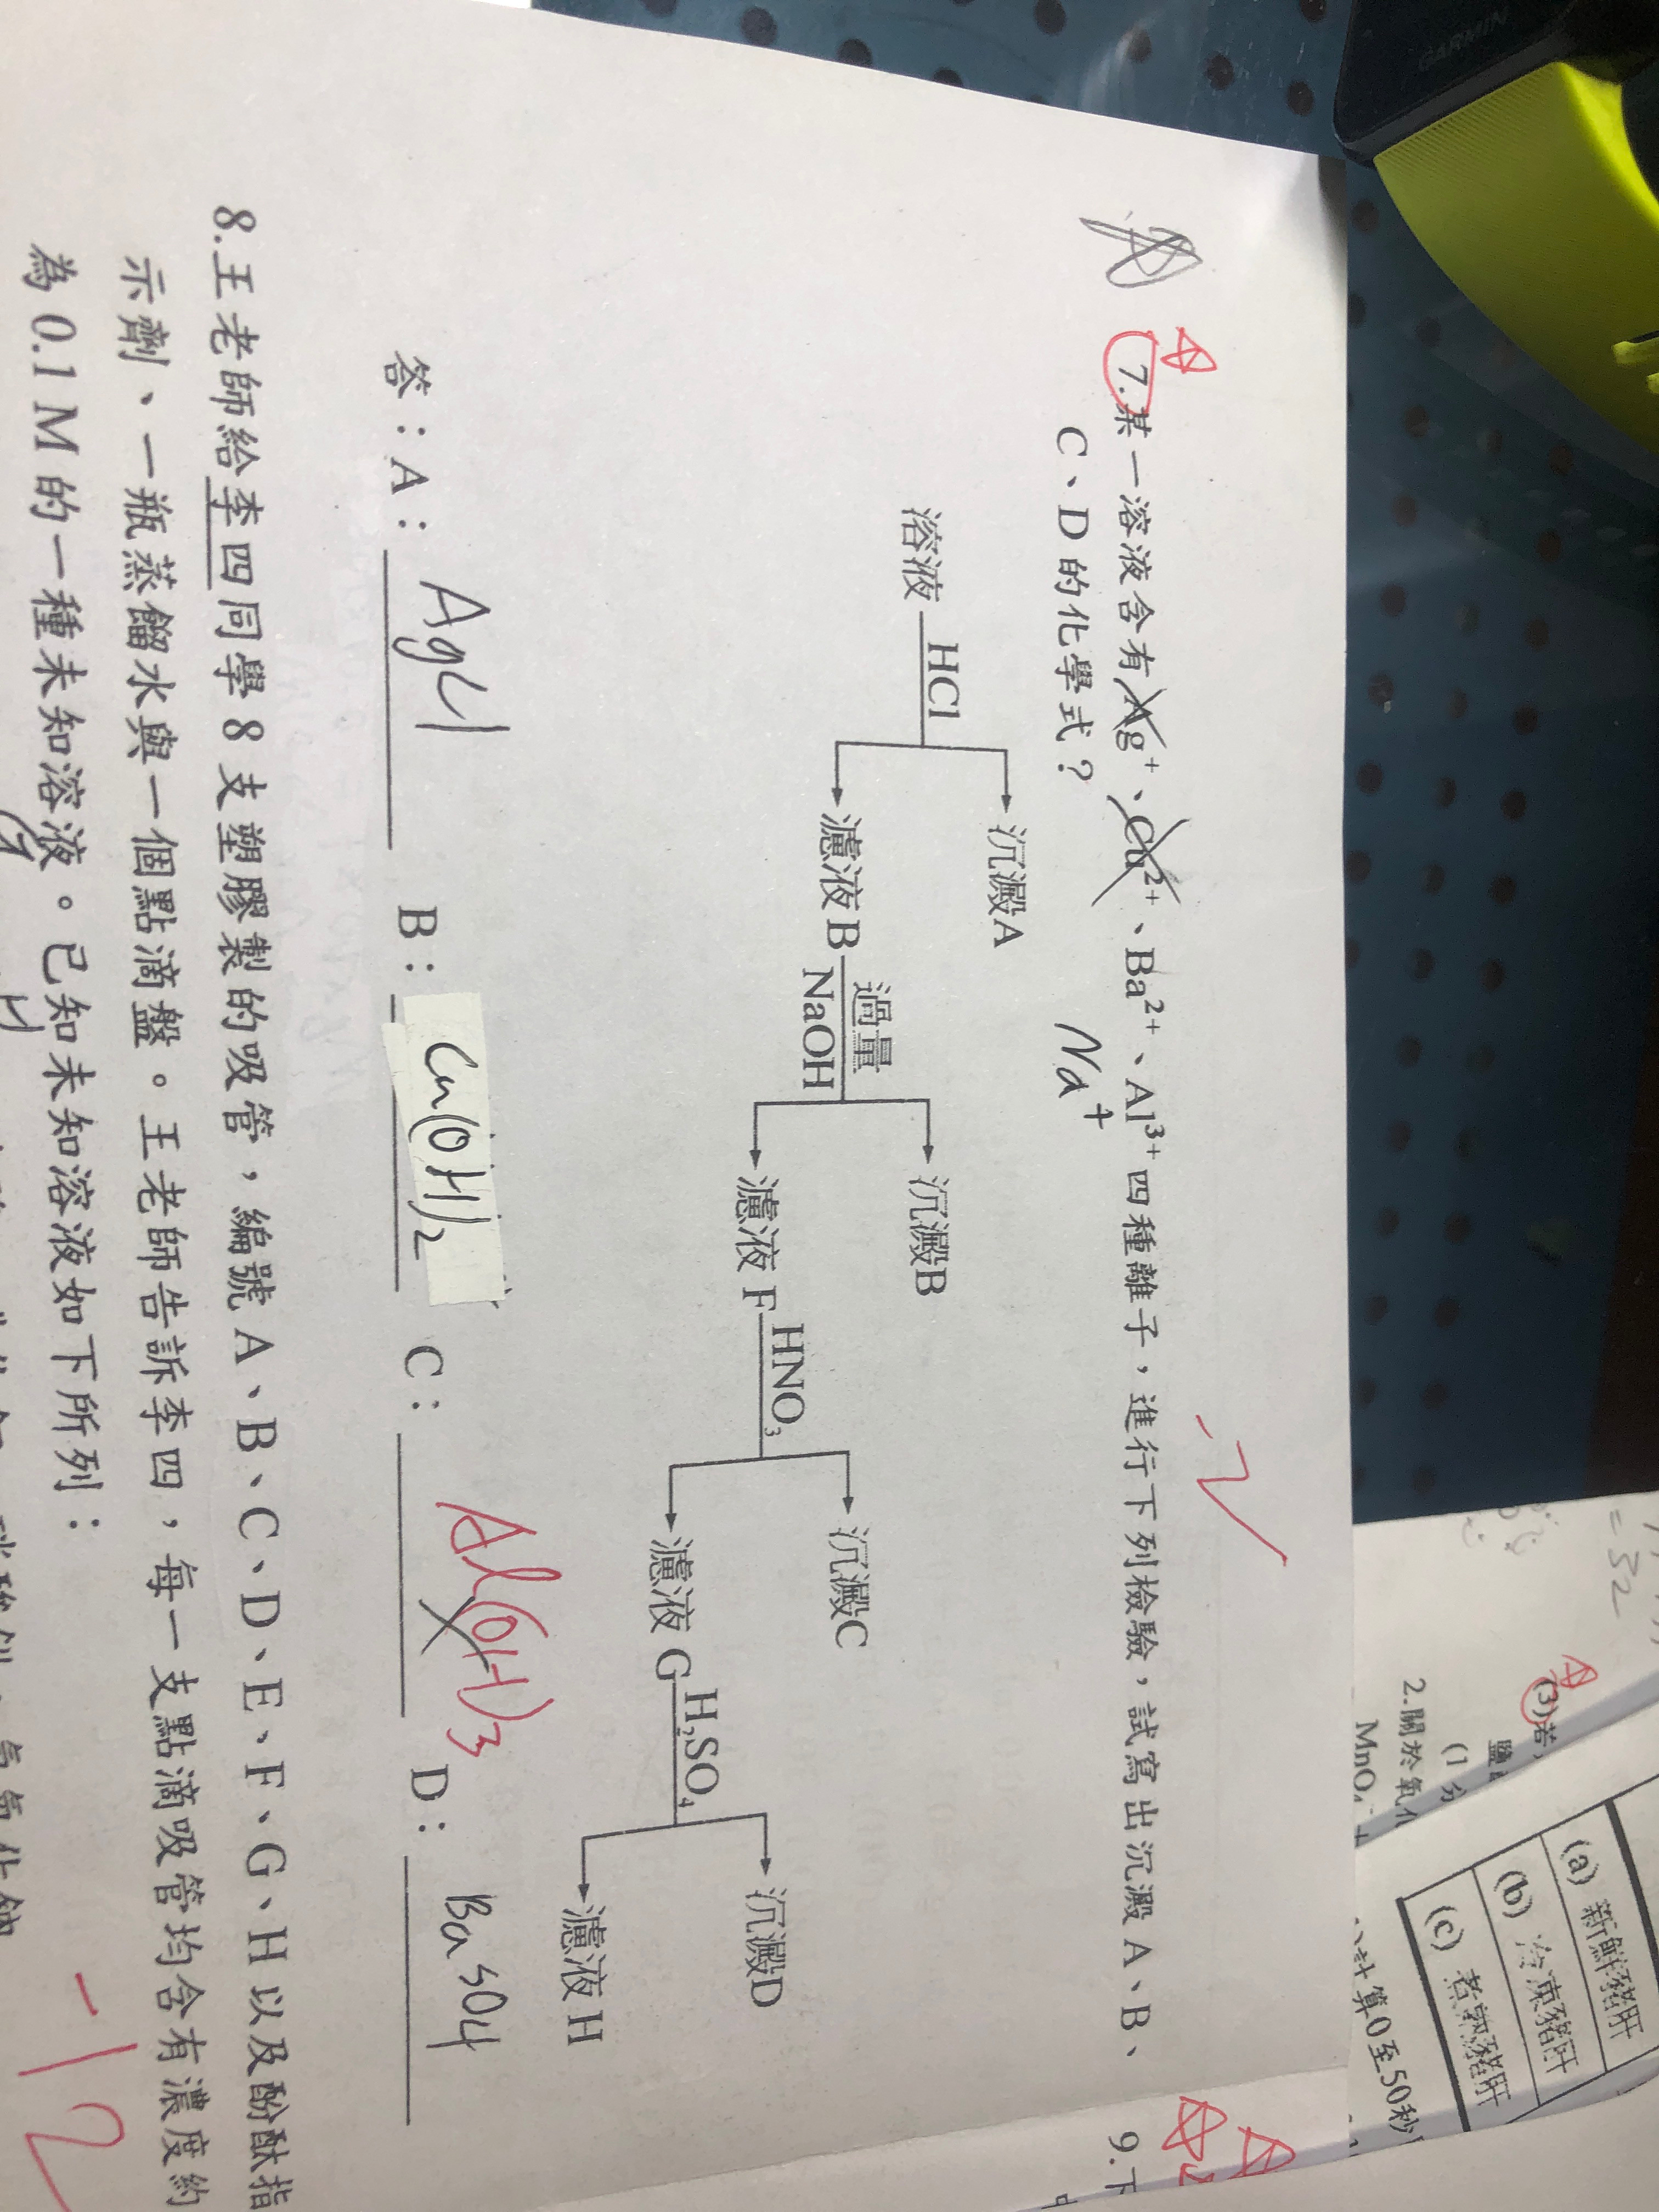 GARMIN
7.某一溶液含有Ag⁺、Cu²⁺、Ba²⁺、Al³⁺四種離子，進行下列檢驗，試寫出沉澱A、B、
C、D的化學式？
Na⁺
-2
溶液 HCl
沉澱A
濾液B 過量 NaOH
沉澱B
濾液F HNO₃
沉澱C
濾液G H₂SO₄
沉澱D
濾液H
答：A：AgCl B：Cu(OH)₂ C：Al(OH)₃ D：BaSO4
8.王老師給李四同學8支塑膠製的吸管，編號A、B、C、D、E、F、G、H以及酚酞指
示劑、一瓶蒸餾水與一個點滴盤。王老師告訴李四，每一支點滴吸管均含有濃度約
為0.1M的一種未知溶液。已知未知溶液如下所列：
H
-12
9.下
= 32
(3)若,
(1分
2.關於氧化
MnO₄⁻
(a) 新鮮豬肝
(b) 冷凍豬肝
(c) 煮熟豬肝
計算0至50秒